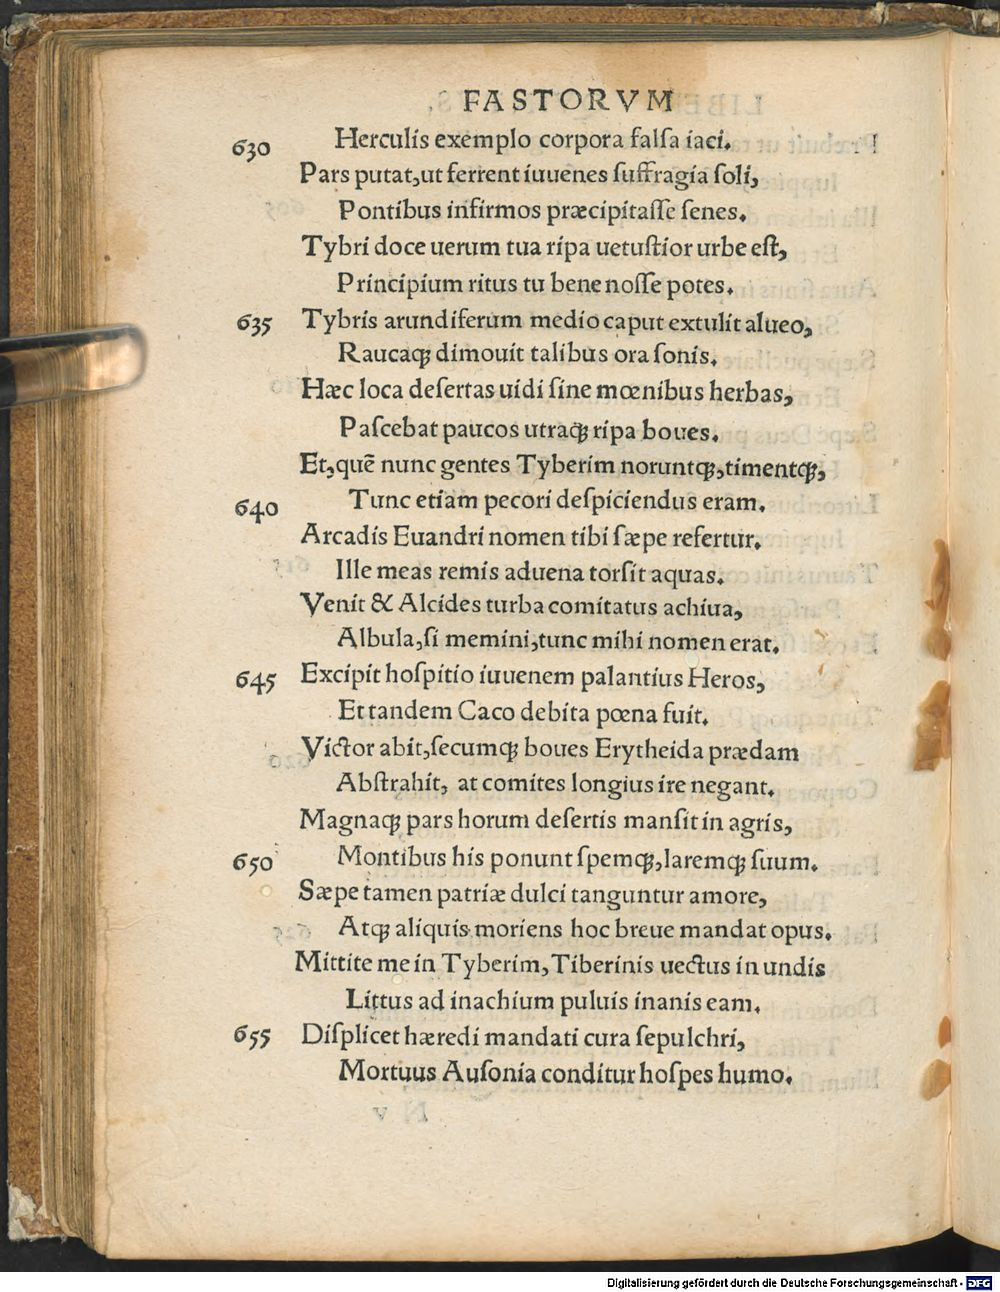 FASTORVM
630 Herculis exemplo corpora falſa iaci.
Pars putat,ut ferrent iuuenes ſuffragia ſoli,
Pontibus infirmos præcipitaſſe ſenes.
Tybri doce uerum tua ripa uetuſtior urbe eſt,
Principium ritus tu bene noſſe potes.
635 Tybris arundiferum medio caput extulit alueo,
Raucaqꝫ dimouit talibus ora ſonis.
Hæc loca deſertas uidi ſine mœnibus herbas,
Paſcebat paucos utraqꝫ ripa boues.
Et,quē nunc gentes Tyberim noruntqꝫ,timentqꝫ,
640 Tunc etiam pecori deſpiciendus eram.
Arcadis Euandri nomen tibi ſæpe refertur.
Ille meas remis aduena torſit aquas.
Venit & Alcides turba comitatus achiua,
Albula,ſi memini,tunc mihi nomen erat.
645 Excipit hoſpitio iuuenem palantius Heros,
Et tandem Caco debita pœna fuit.
Victor abit,ſecumqꝫ boues Erytheida prædam
Abſtrahit, at comites longius ire negant.
Magnaqꝫ pars horum deſertis manſit in agris,
650 Montibus his ponunt ſpemqꝫ,laremqꝫ ſuum.
Sæpe tamen patriæ dulci tanguntur amore,
Atqꝫ aliquis moriens hoc breue mandat opus.
Mittite me in Tyberim,Tiberinis uectus in undis
Littus ad inachium puluis inanis eam.
655 Diſplicet hæredi mandati cura ſepulchri,
Mortuus Auſonia conditur hoſpes humo.
Digitalisierung gefördert durch die Deutsche Forschungsgemeinschaft - DFG